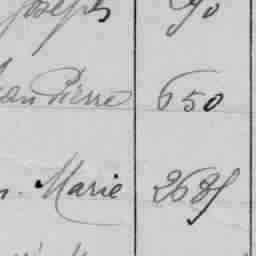 Joseph 90
Jean Pierre 650
Marie 2685